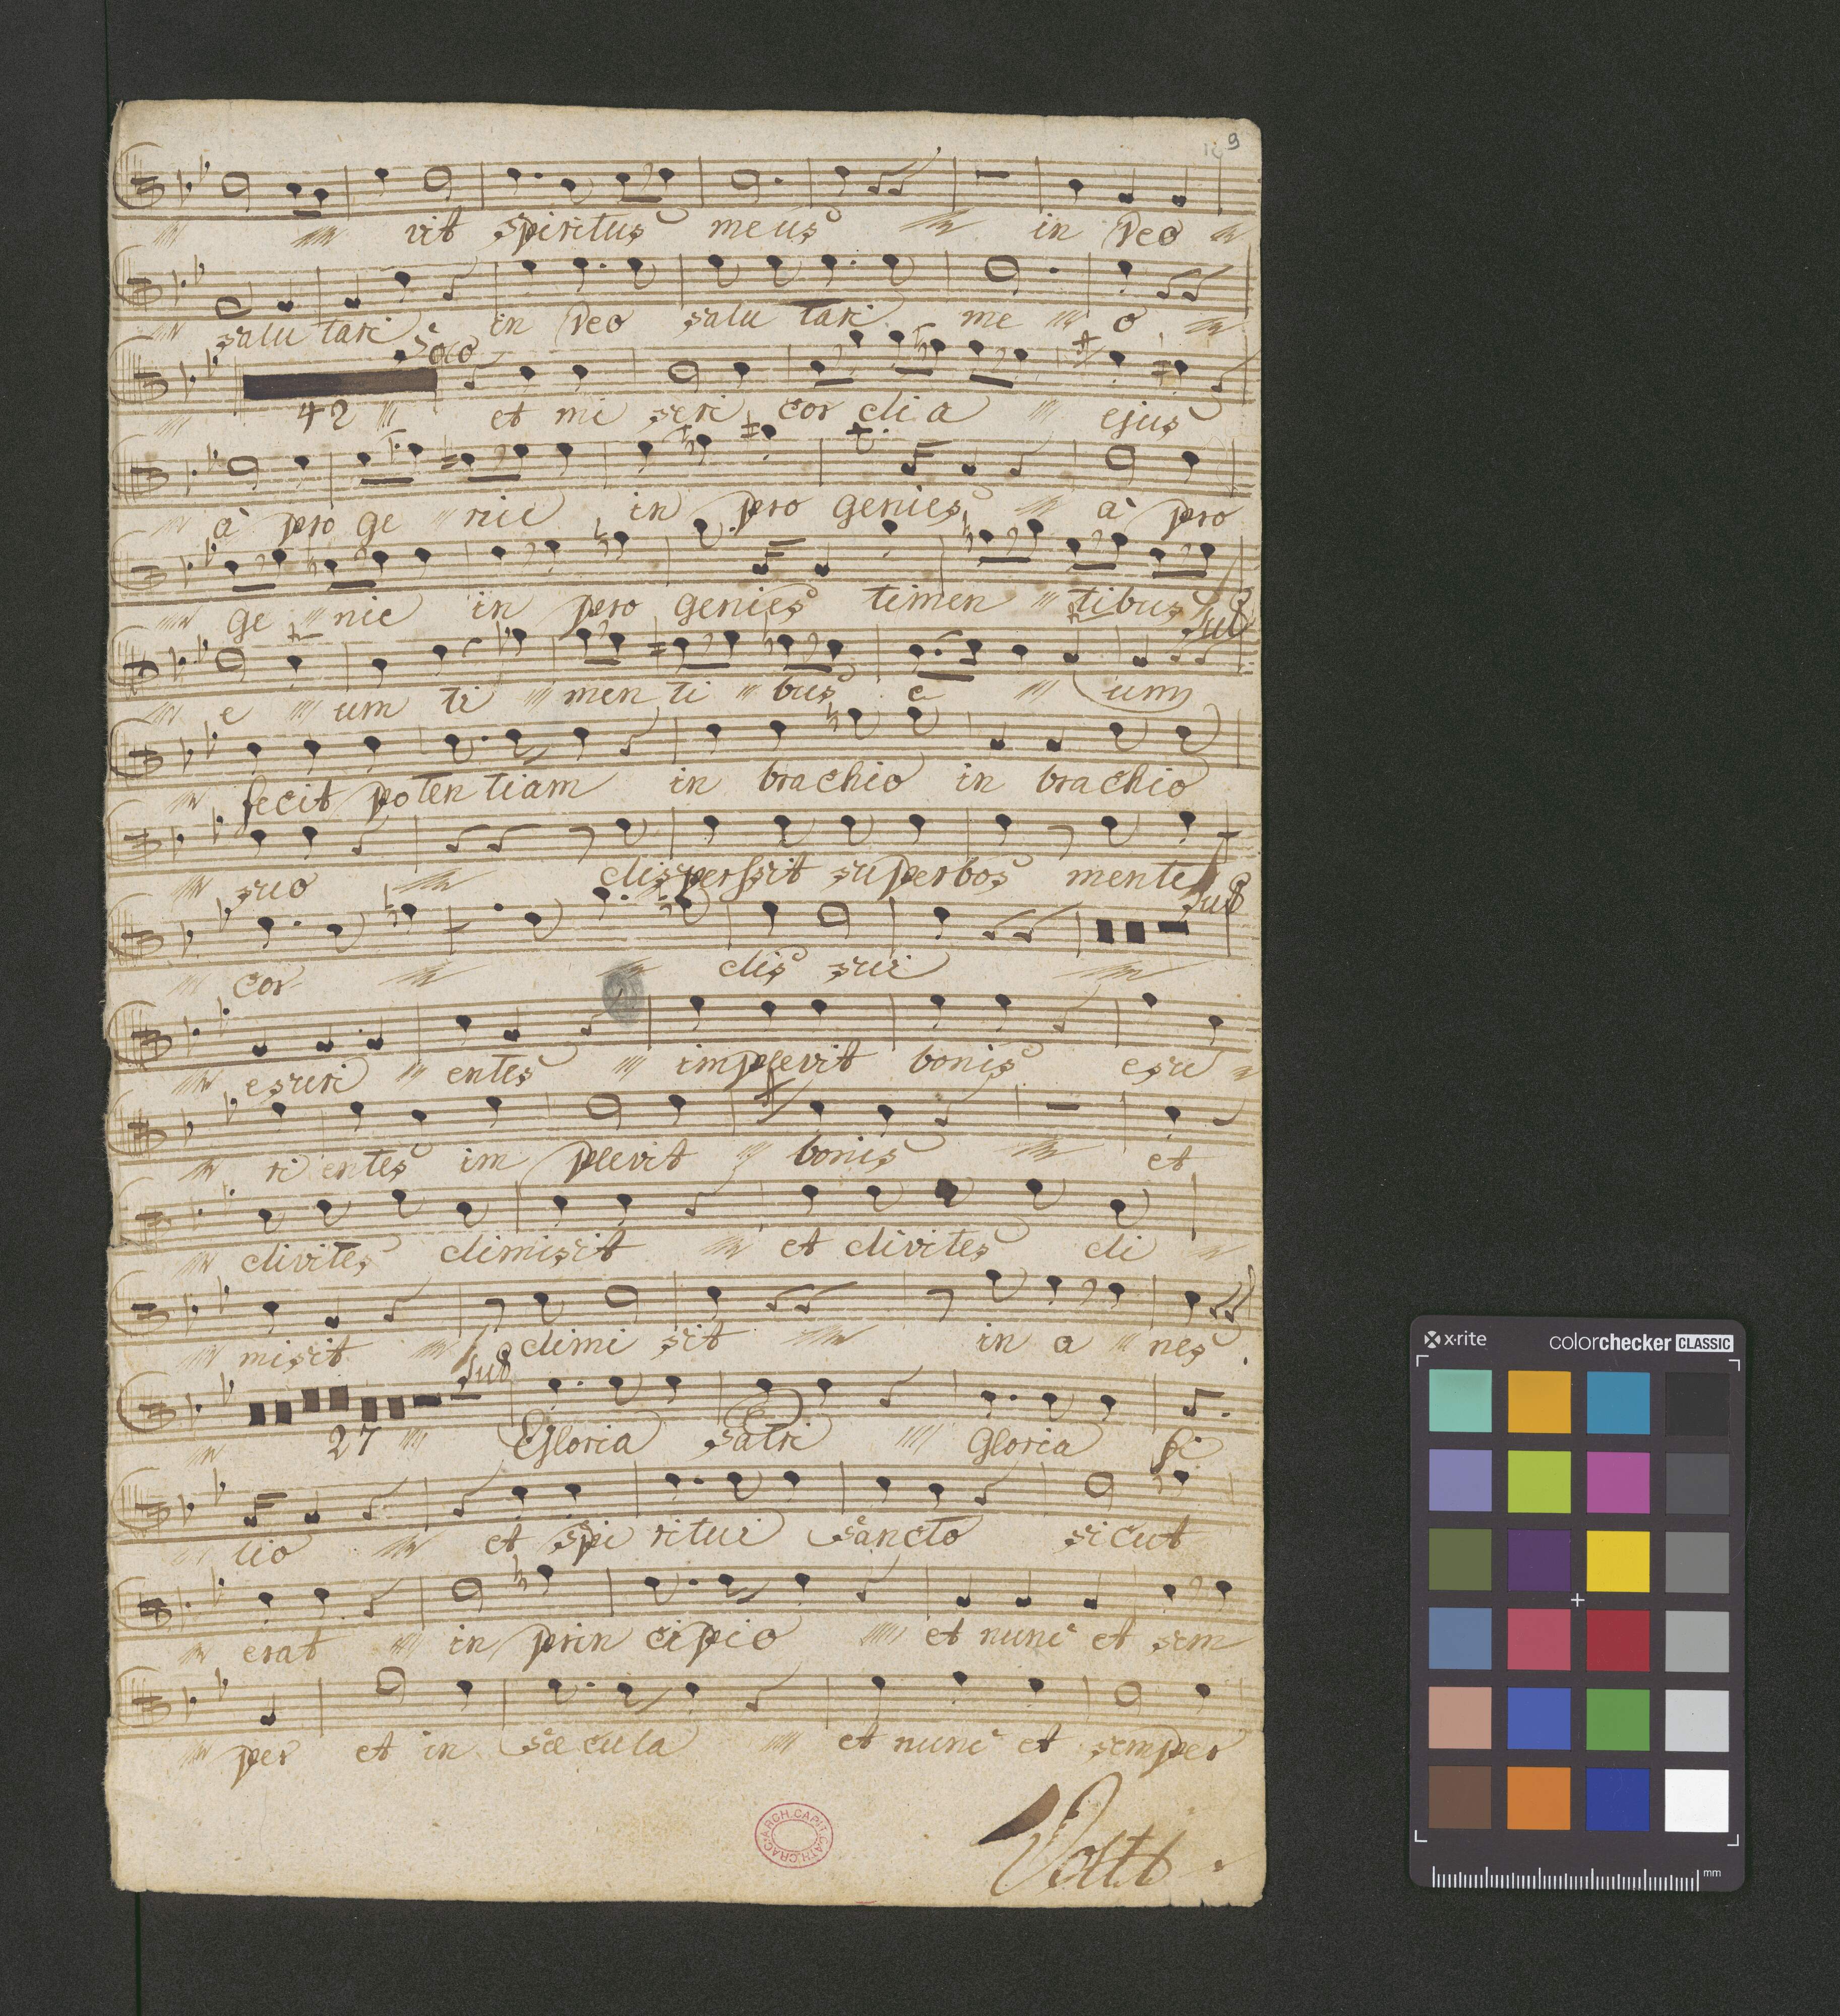 9
vit spiritus meus in Deo
salutari in Deo salutari me o
Solo
42 et mi seri cor dia ejus
à pro ge nie in pro genies à pro
ge nie in pro genies timen tibus
Sub
e um ti men ti bus e um
fecit potentiam in brachio in brachio
suo disperssit superbos mente
Sub
cor dis sui
esuri entes implevit bonis esu
ri entes im plevit bonis et
divites dimisit et divites di
misit dimi sit in a nes
Sub
27 Gloria Patri Gloria fi
lio et Spi ritui Sancto sicut
erat in prin cipio et nunc et sem
per et in sæcula et nunc et semper
ARCH.CAPIT.CATH.CRAC.
x·rite colorchecker CLASSIC
mm